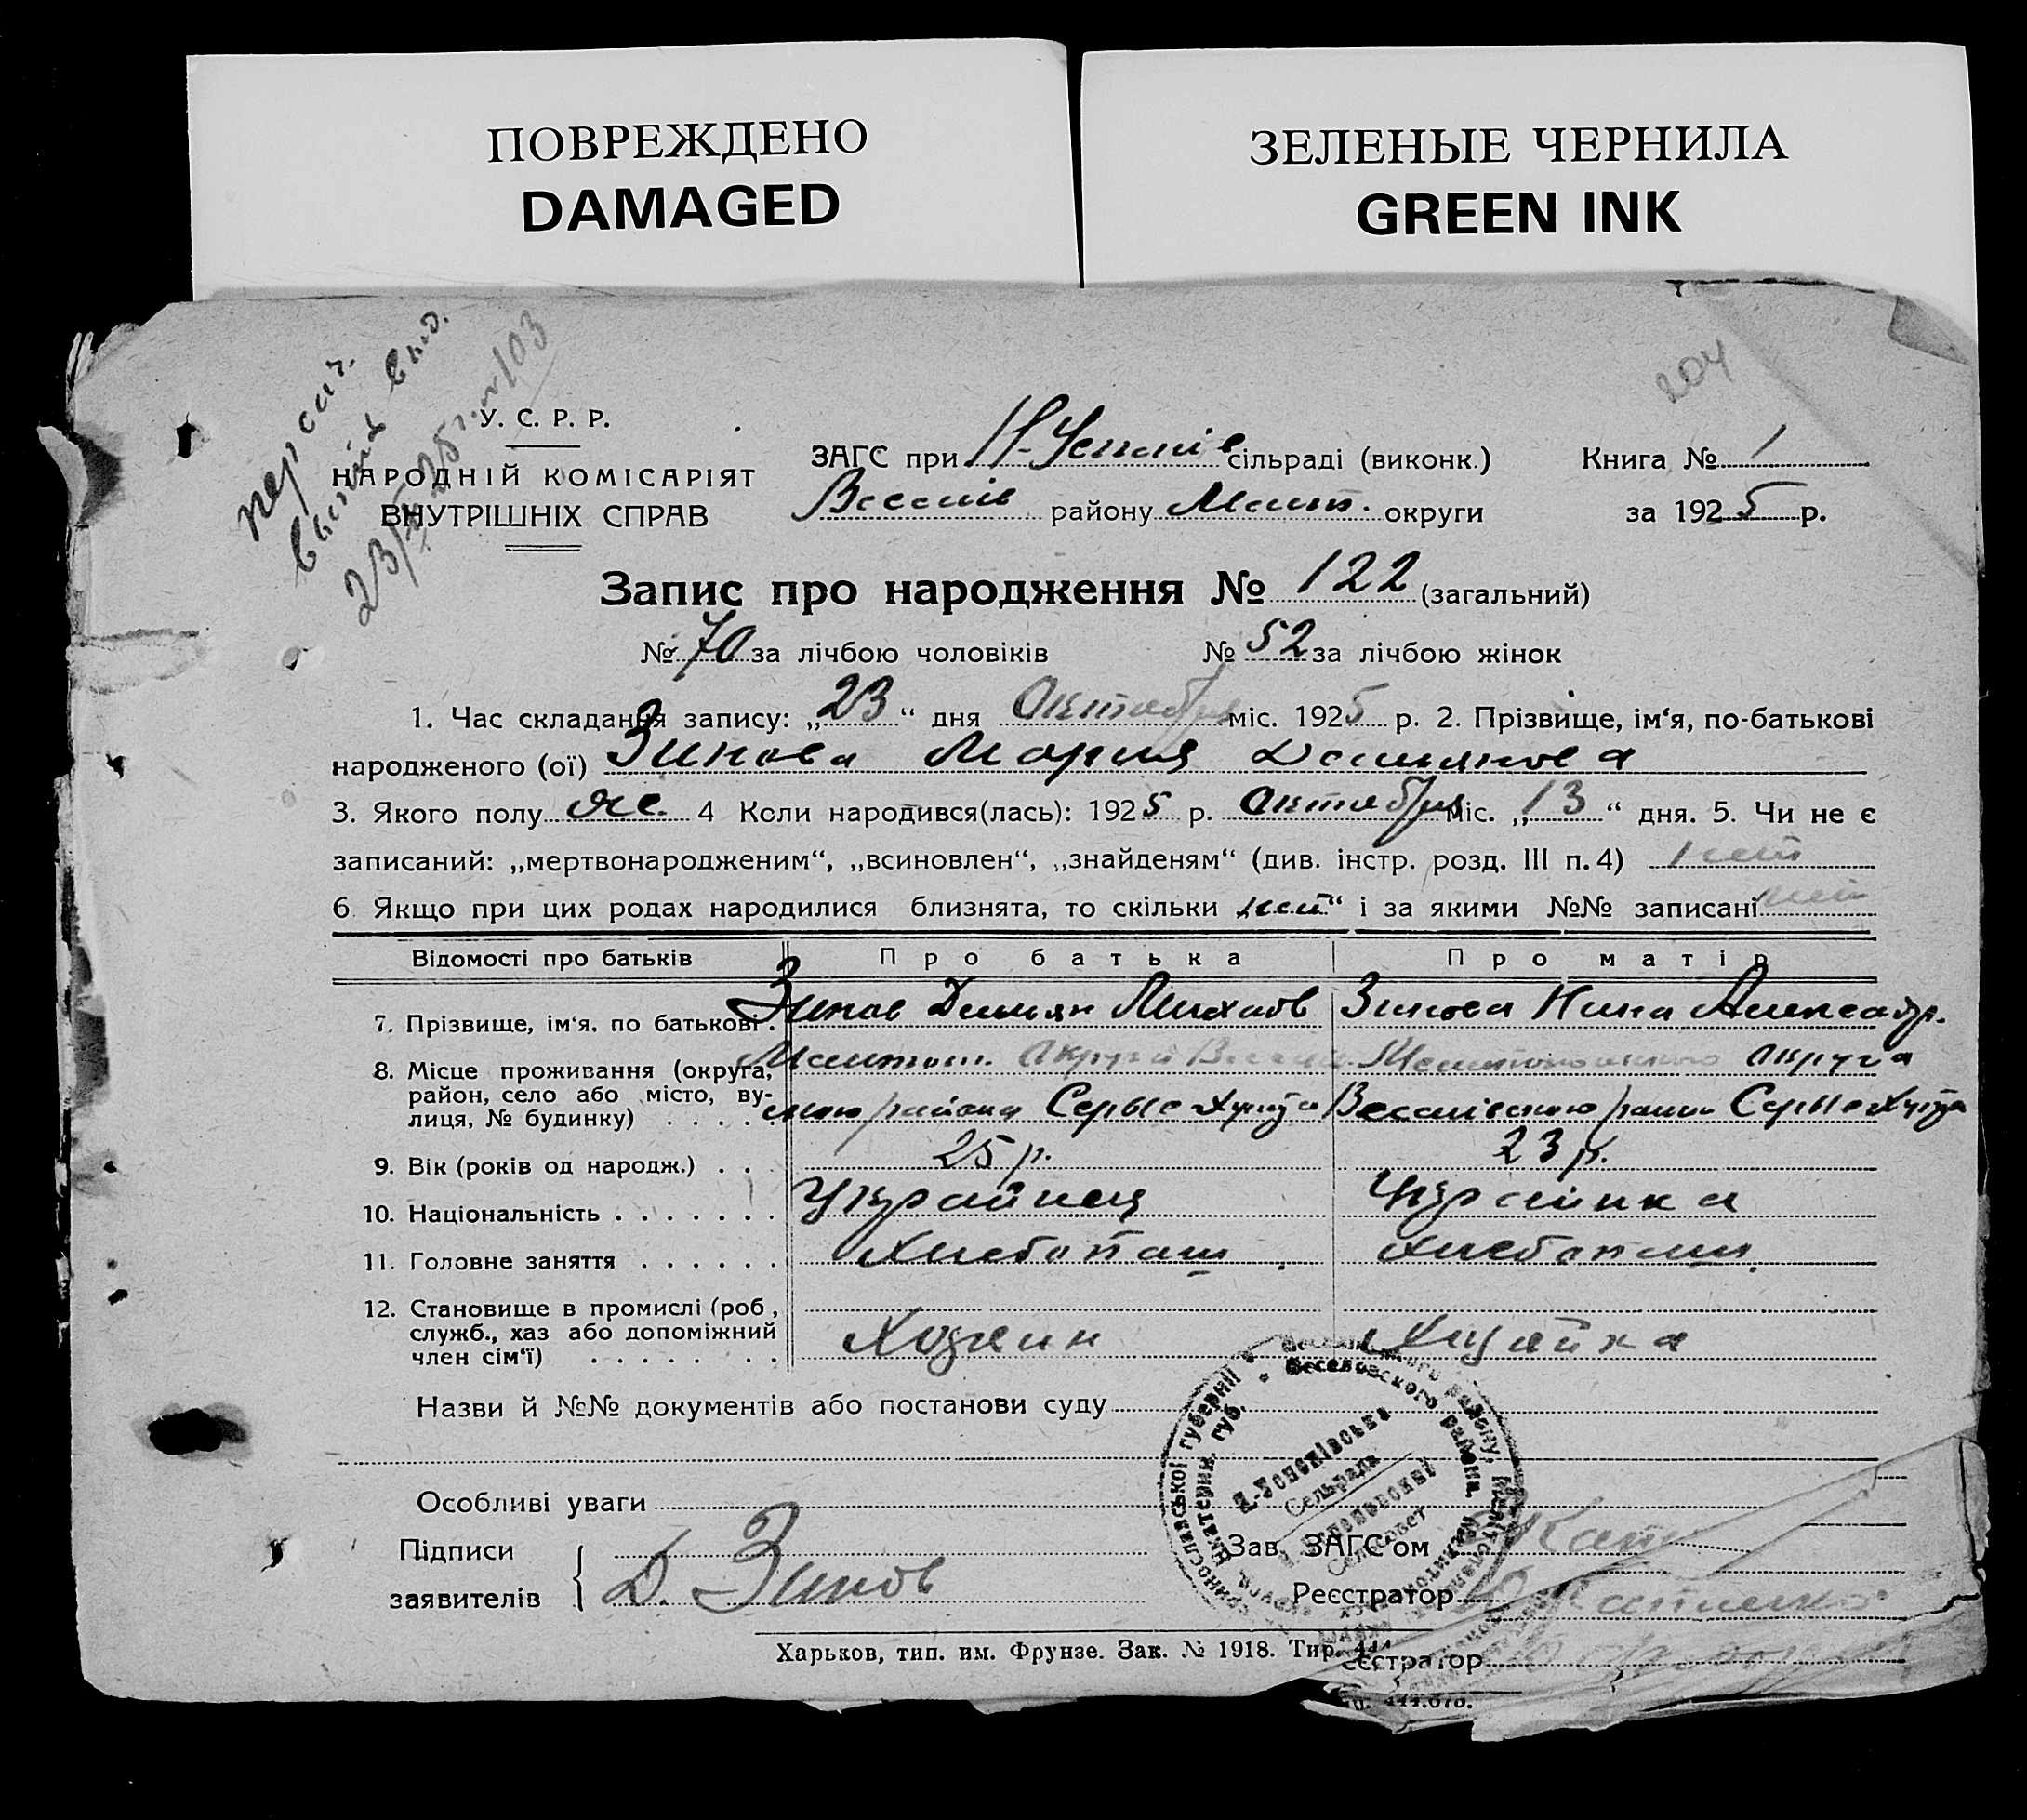 ПОВРЕЖДЕНО
DAMAGED
ЗЕЛЕНЫЕ ЧЕРНИЛА
GREEN INK
204
У. С. Р. Р.
НАРОДНІЙ КОМІСАРІЯТ
ВНУТРІШНІХ СПРАВ
ЗАГС при сільраді (виконк.)
Веселів району Меліт. округи
Книга № 1
за 1925 р.
Запис про народження № 122 (загальний)
№ 70 за лічбою чоловіків № 52 за лічбою жінок
1. Час складання запису: „23“ дня Октября міс. 1925 р. 2. Прізвище, ім‘я, по-батькові
народженого (ої) Зинова Мария Демьянова
3. Якого полу же. 4 Коли народився(лась): 1925 р. Октября міс. „13“ дня. 5. Чи не є
записаний: „мертвонародженим“, „всиновлен“, „знайденям“ (див. інстр. розд. III п. 4) нет
6. Якщо при цих родах народилися близнята, то скільки „нет“ і за якими №№ записані нет
Відомості про батьків Про батька Про матір
7. Прізвище, ім‘я, по батькові. Зинов Демьян Михайлов Зинова Нина Александр.
8. Місце проживання (округа, Мелитоп. Округи Мелитопольского округа
район, село або місто, ву- района Хутор района Хутор
лиця, № будинку)
9. Вік (років од народж.) 25 р. 23 р.
10. Національність Украйнец Украінка
11. Головне заняття Хлебопаш. Хлебопаш.
12. Становище в промислі (роб,
служб., хаз або допоміжний Хозяин Хозяйка
член сім‘ї)
Назви й №№ документів або постанови суду
Особливі уваги
Підписи
заявителів Д. Зинов
Веселовского района
Сельрада
Сельсовет
Зав. ЗАГС‘ом
Реєстратор
Харьков, тип. им. Фрунзе. Зак. № 1918. Тир.
еєстратор